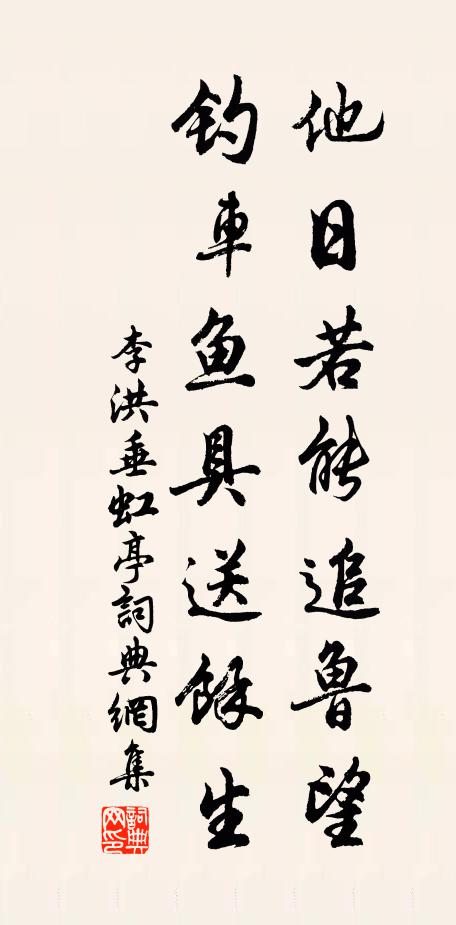 他日若能追鲁望
钓車鱼具送餘生
李洪垂虹亭詞典網集
詞典网印